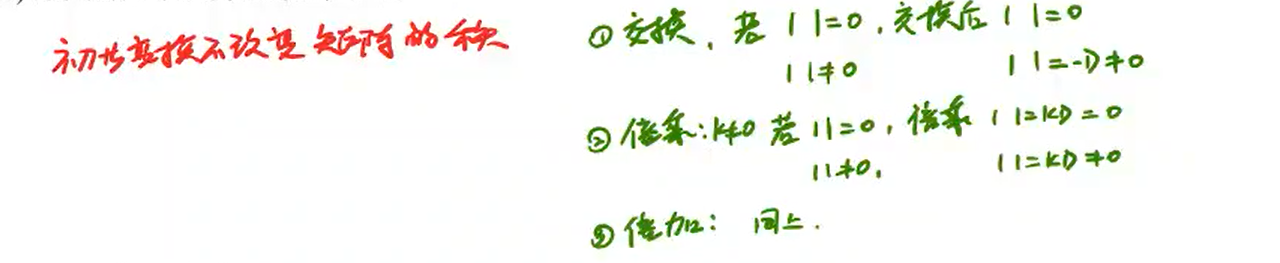 初等变换不改变矩阵的秩
① 交换, 若 | |=0, 交换后 | |=0
| |≠0 | |=-D≠0
② 倍乘: k≠0 若 | |=0, 倍乘 | |=kD=0
| |≠0, | |=kD≠0
③ 倍加: 同上.